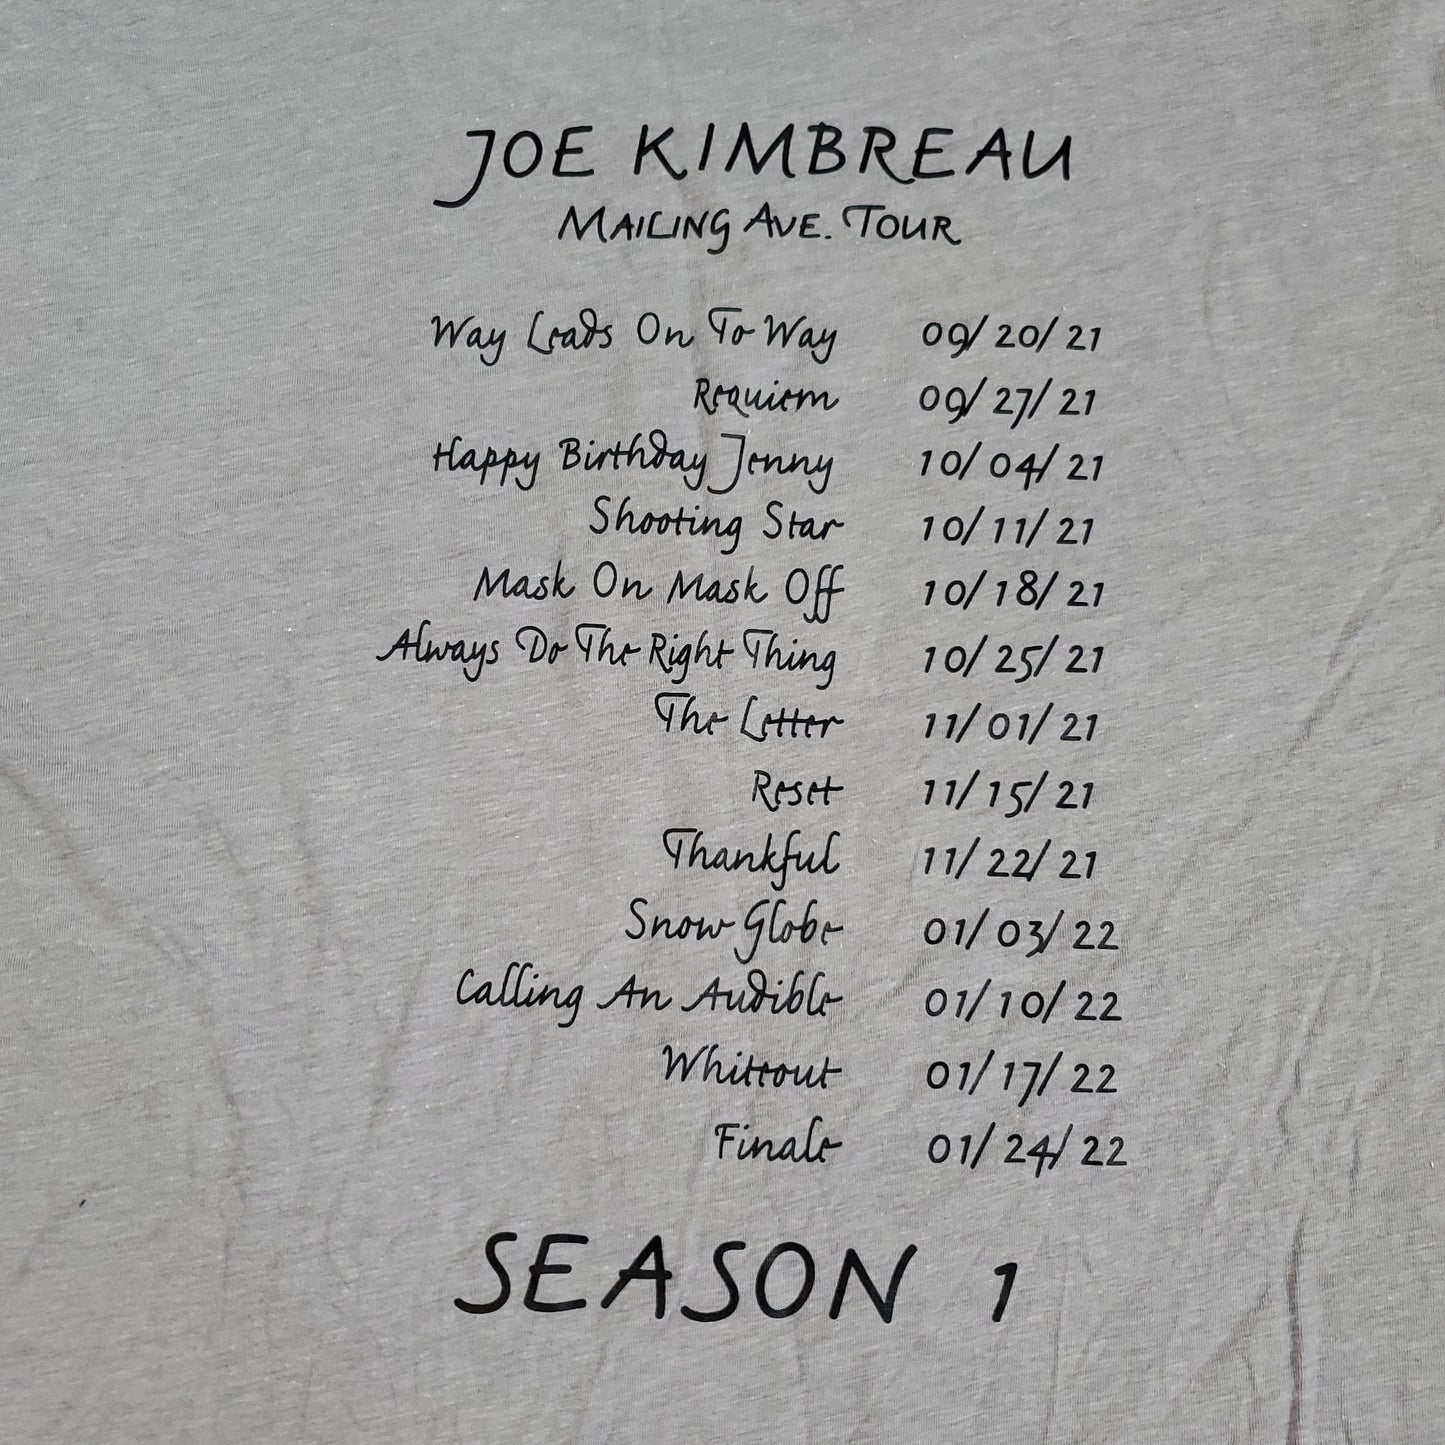 JOE KIMBREAU
MAILING AVE. TOUR
Way Leads On To Way 09/20/21
Requiem 09/27/21
Happy Birthday Jenny 10/04/21
Shooting Star 10/11/21
Mask On Mask Off 10/18/21
Always Do The Right Thing 10/25/21
The Letter 11/01/21
Reset 11/15/21
Thankful 11/22/21
Snow Globe 01/03/22
Calling An Audible 01/10/22
Whiteout 01/17/22
Finale 01/24/22
SEASON 1